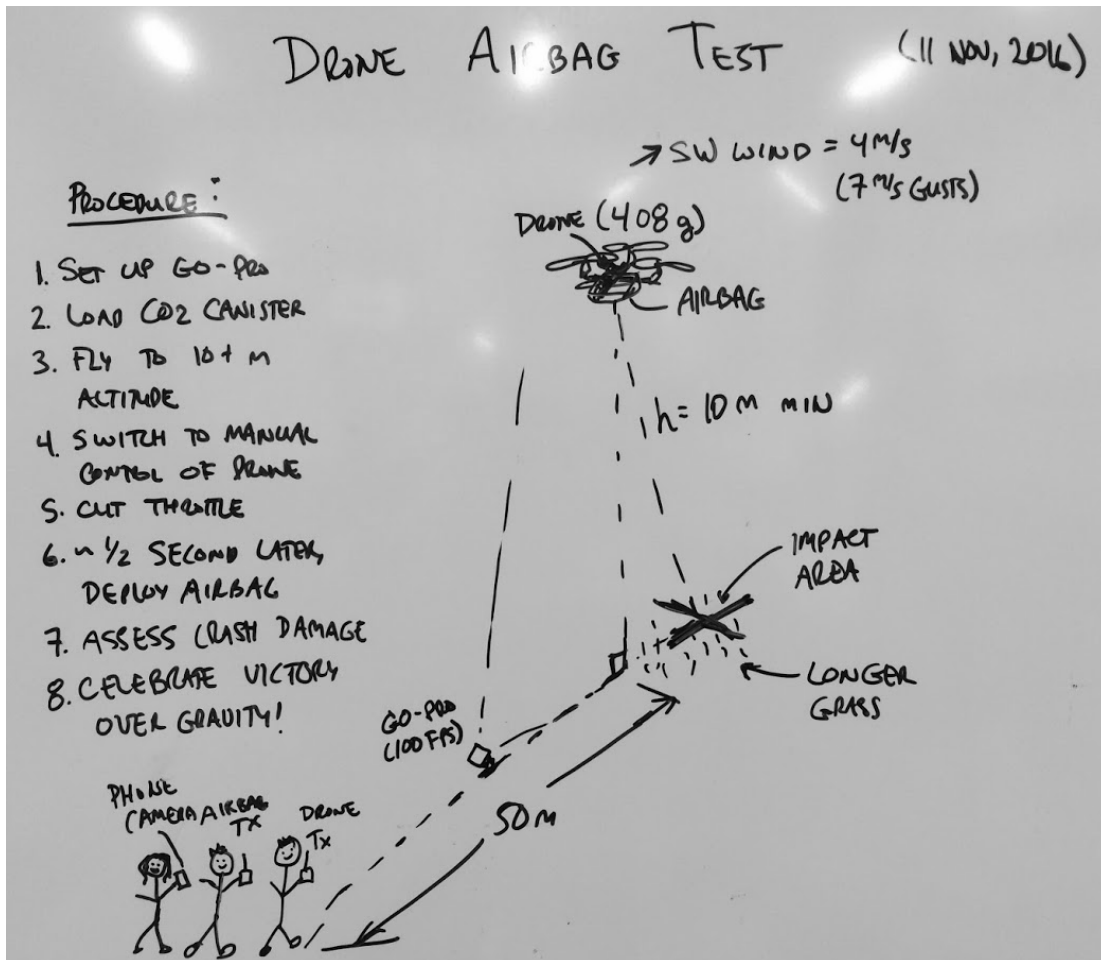 DRONE AIRBAG TEST (11 NOV, 2016)
→ SW WIND = 4 M/S
(7 M/S GUSTS)
PROCEDURE:
1. SET UP GO-PRO
2. LOAD CO2 CANISTER
3. FLY TO 10+ M
ALTITUDE
4. SWITCH TO MANUAL
CONTROL OF DRONE
5. CUT THROTTLE
6. ~ 1/2 SECOND LATER,
DEPLOY AIRBAG
7. ASSESS CRASH DAMAGE
8. CELEBRATE VICTORY
OVER GRAVITY!
DRONE (408 g)
AIRBAG
h = 10 M MIN
IMPACT
AREA
LONGER
GRASS
GO-PRO
(100 FPS)
50 M
PHONE
CAMERA
AIRBAG
TX
DRONE
TX